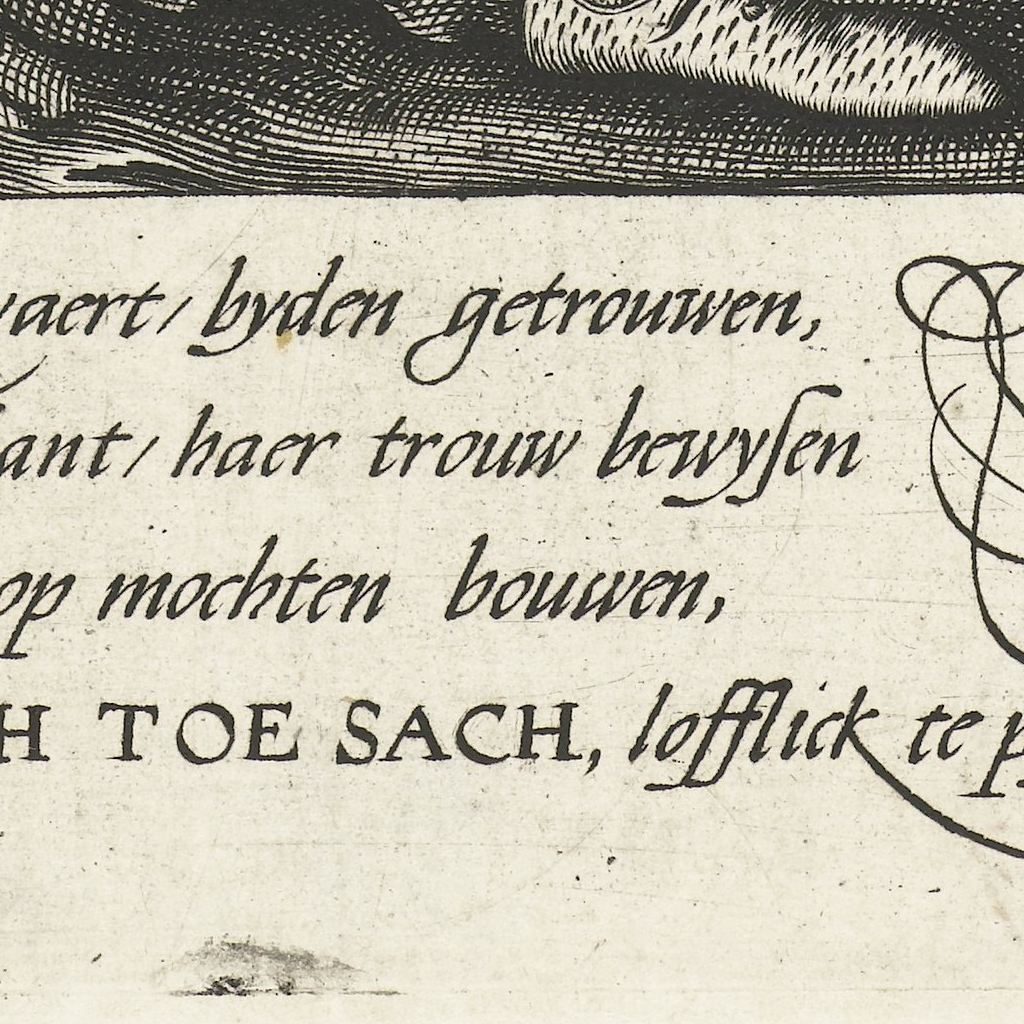 vaert/ byden getrouwen,
ant/ haer trouw bewyſen
op mochten bouwen,
H TOE SACH, lofflick te p